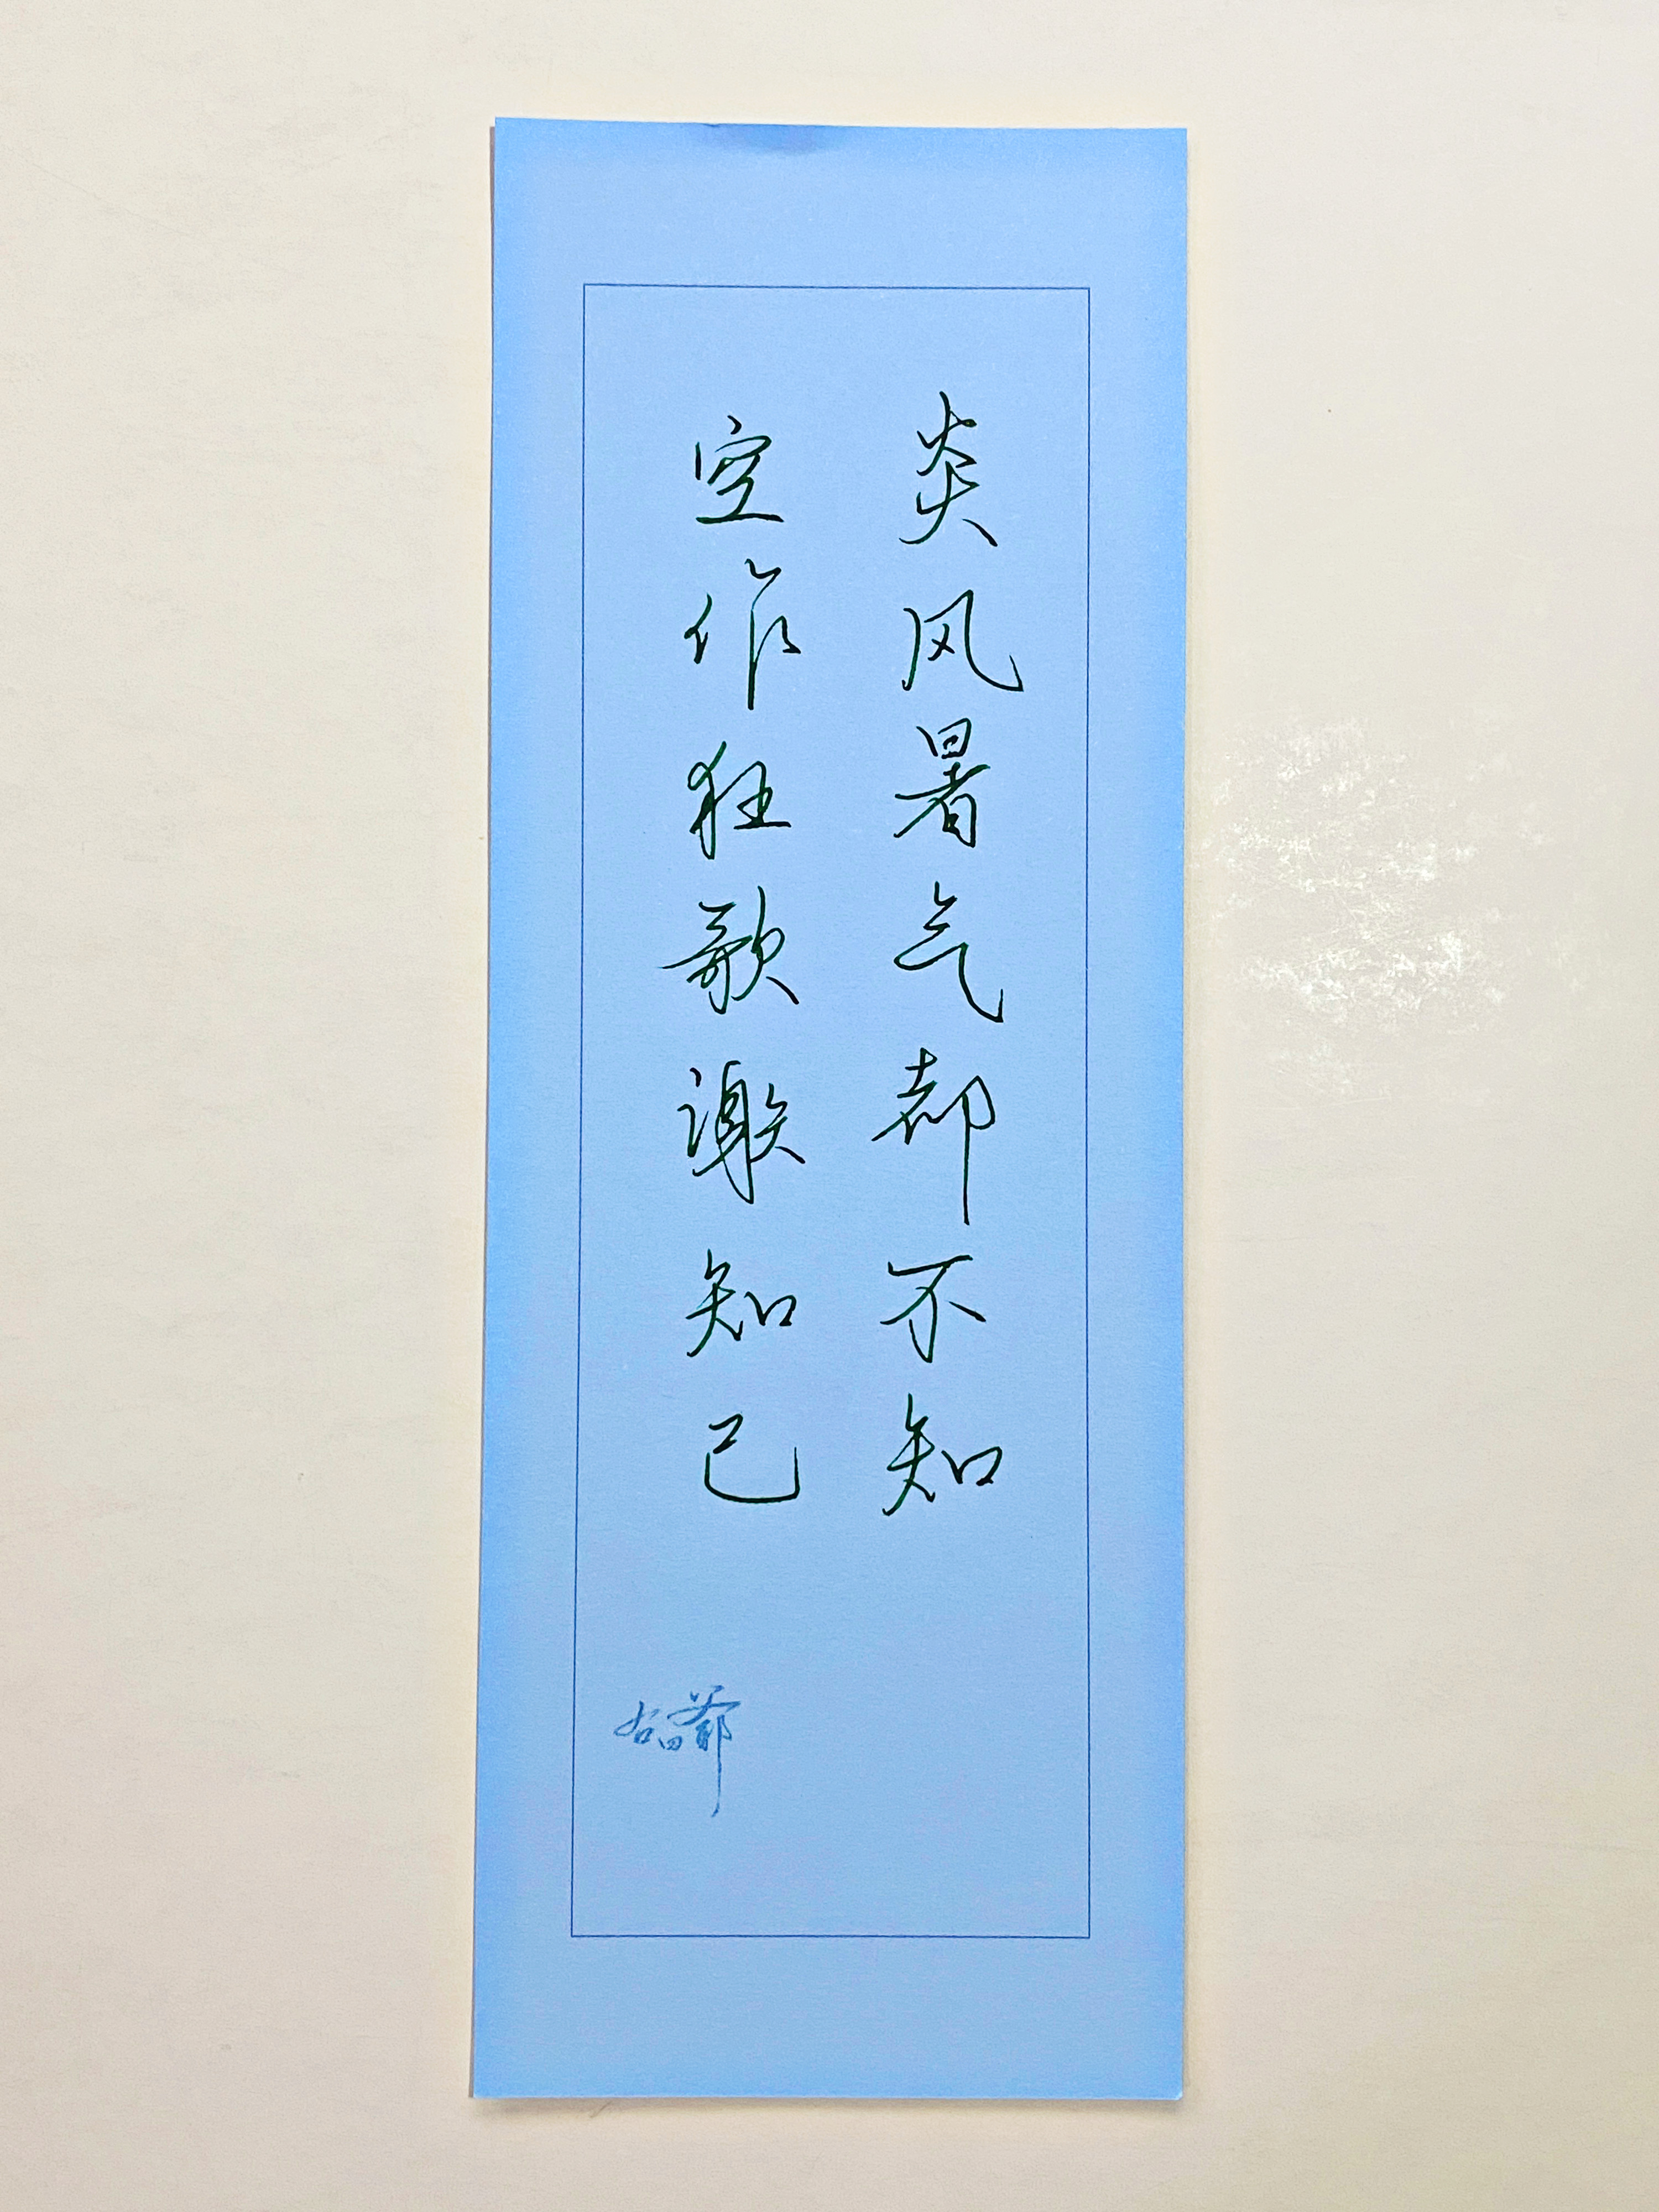 炎风暑气都不知
空作狂歌谢知己